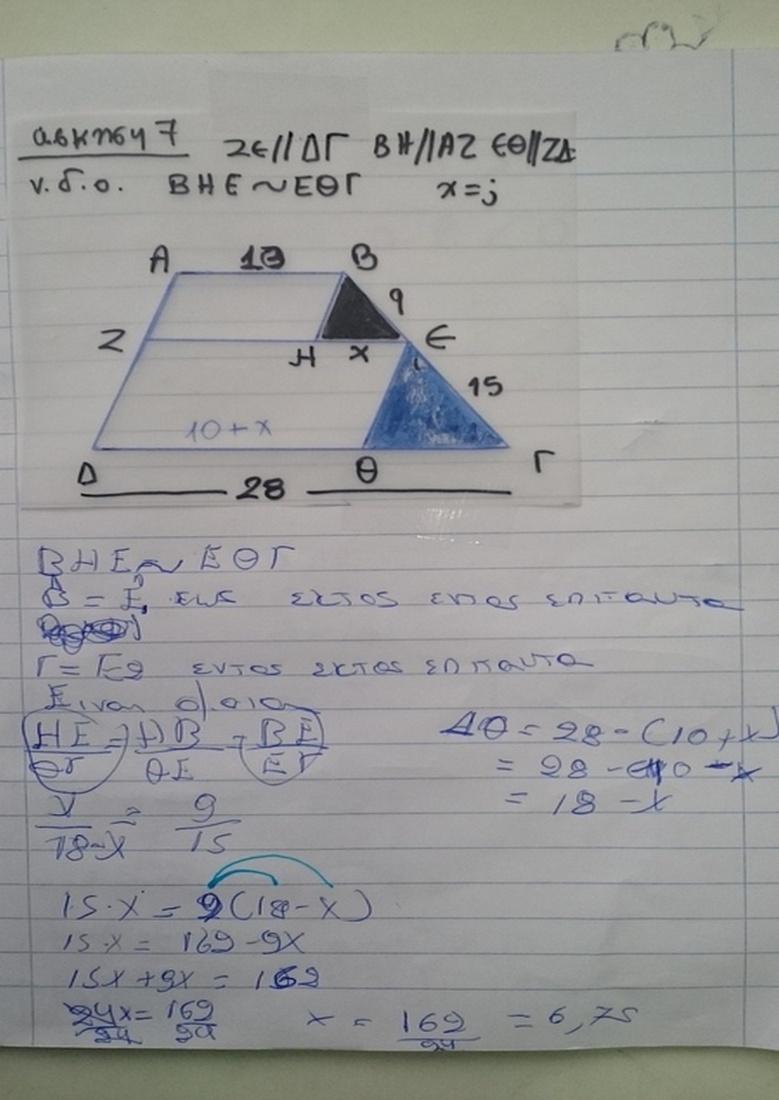 ασκηση 7 ΖΕ//ΔΓ ΒΗ//ΑΖ ΕΘ//ΖΔ
ν.δ.ο. ΒΗΕ ~ ΕΘΓ x=;
Α Β
9
Ζ Η x Ε
15
10+x
Δ Θ Γ
28
ΒΗΕ ~ ΕΘΓ
Β̂ = Ε̂₁ εκτος εντος επι ταυτα
Γ = Ε₂ εντος εκτος επι ταυτα
Ειναι ομοια
ΗΕ/ΘΓ = ΗΒ/ΘΕ = ΒΕ/ΕΓ
ΔΘ = 28 - (10+x)
= 28 - 10 - x
= 18 - x
x/18-x = 9/15
15·x = 9(18-x)
15·x = 162 - 9x
15x + 9x = 162
24x/24 = 162/24 x = 162/24 = 6,75